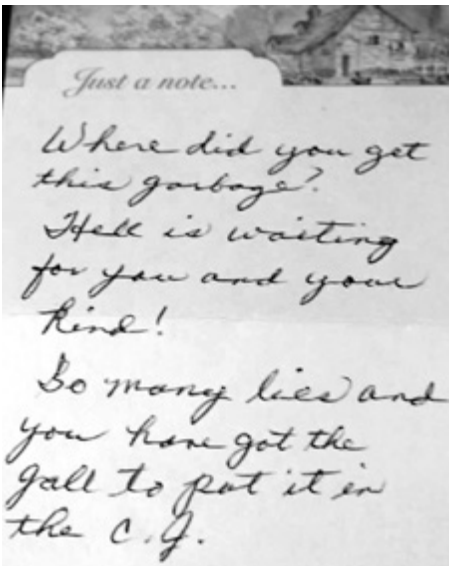 Just a note...
Where did you get
this garbage?
Hell is waiting
for you and your
kind!
So many lies and
you have got the
gall to put it in
the C.J.